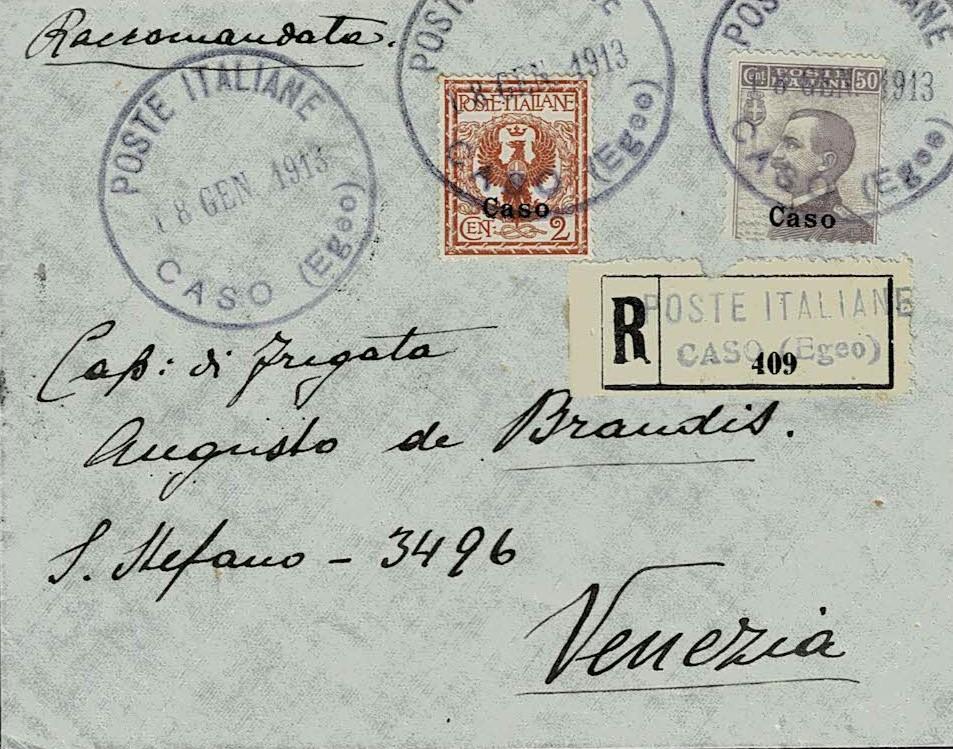 Raccomandata.
POSTE ITALIANE
18 GEN. 1913
CASO (Egeo)
POSTE ITALIANE
18 GEN. 1913
CASO (Egeo)
POSTE-ITALIANE
Caso
CEN. 2
POSTE ITALIANE
1913
CASO (Egeo)
Cent. POSTE ITALIANE 50
Caso
R
POSTE ITALIANE
CASO (Egeo)
409
Cap: di Fregata
Augusto de Brandis.
S. Stefano - 3496
Venezia